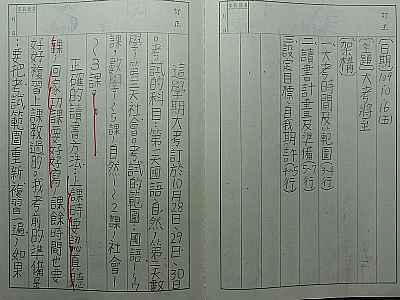 日期101 10 16(二)
主題:大考將至
架構
一大考時間及範圍(3~4行)
二讀書計畫及準備(5~7行)
三設定目標、自我期許(4~5行)
這學期大考訂於10月28日、29日、30日
。考試的科目:第一天國語、自然,第二天數
學,第三天社會。考試的範圍:國語一~
課,數學一~5課,自然一~2課,社會一
~3課。
正確的讀書方法:上課時要認真聽
課,回家功課要好好寫,課餘時間也要
好好複習上課教過的。我考前的準備是
:要把考試範圍重新複習一遍,如果